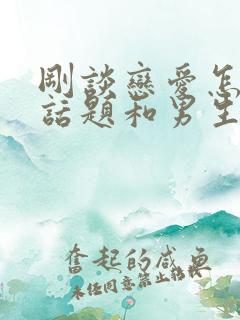 剛談戀愛怎
話題和男生
奮起的咸魚
未经同意禁止转载